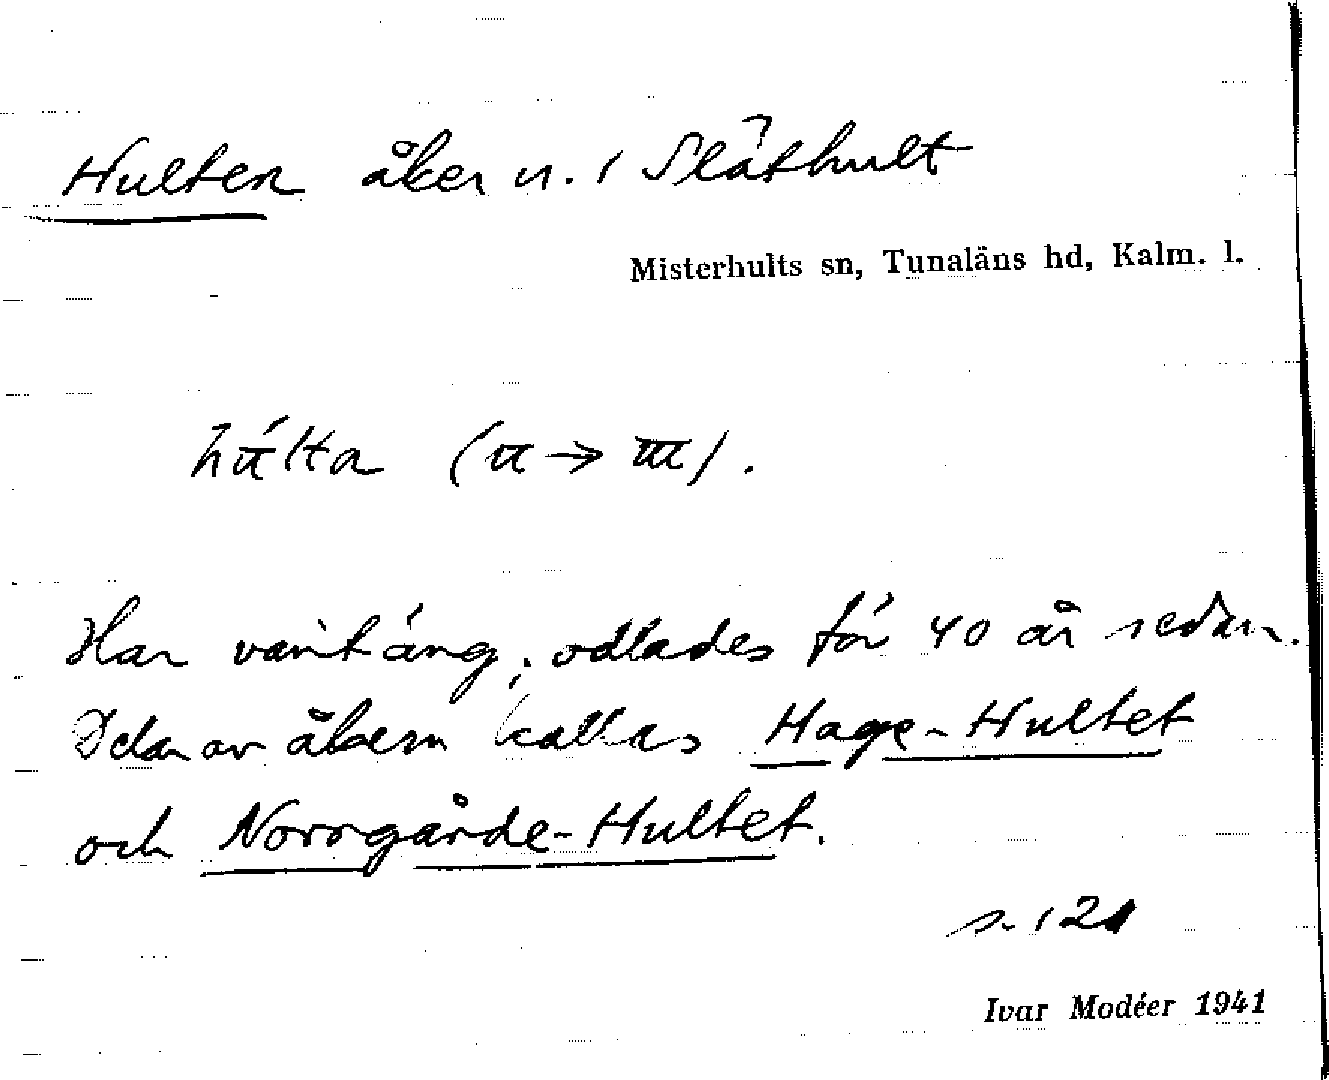 Hulten åker n. 1 Släthult
Misterhults sn, Tunaläns hd, Kalm. l.
húlta (u → u).
Har varit äng; odlades för 40 år sedan.
Delar av åkern kallas Hage-Hultet
och Norrgårde-Hultet.
s. 121
Ivar Modéer 1941